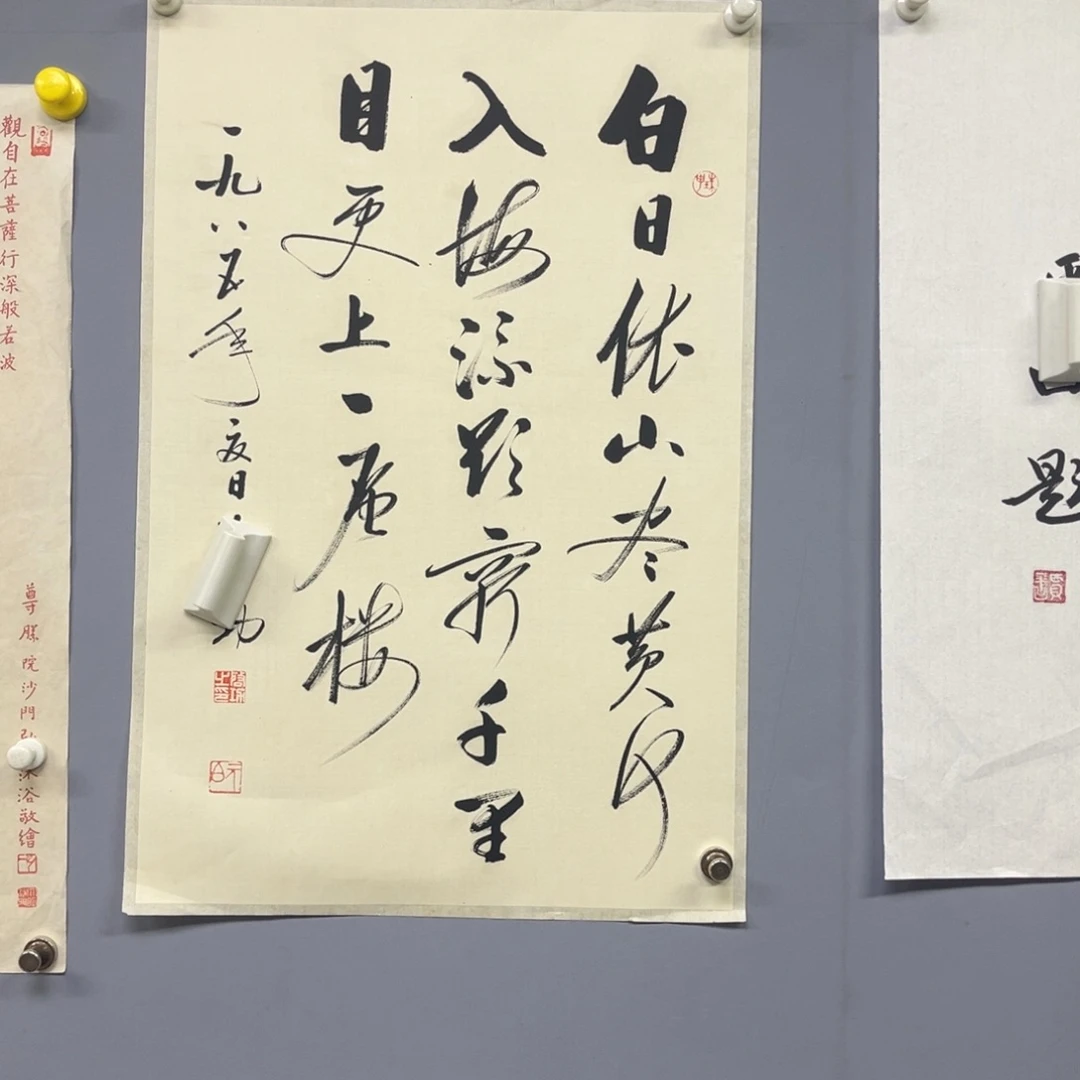 題
白日依山尽黄河
入海流欲穷千里
目更上一层楼
一九八五年夏日 功
觀自在菩薩行深般若波
尊勝院沙門 沐浴敬繪